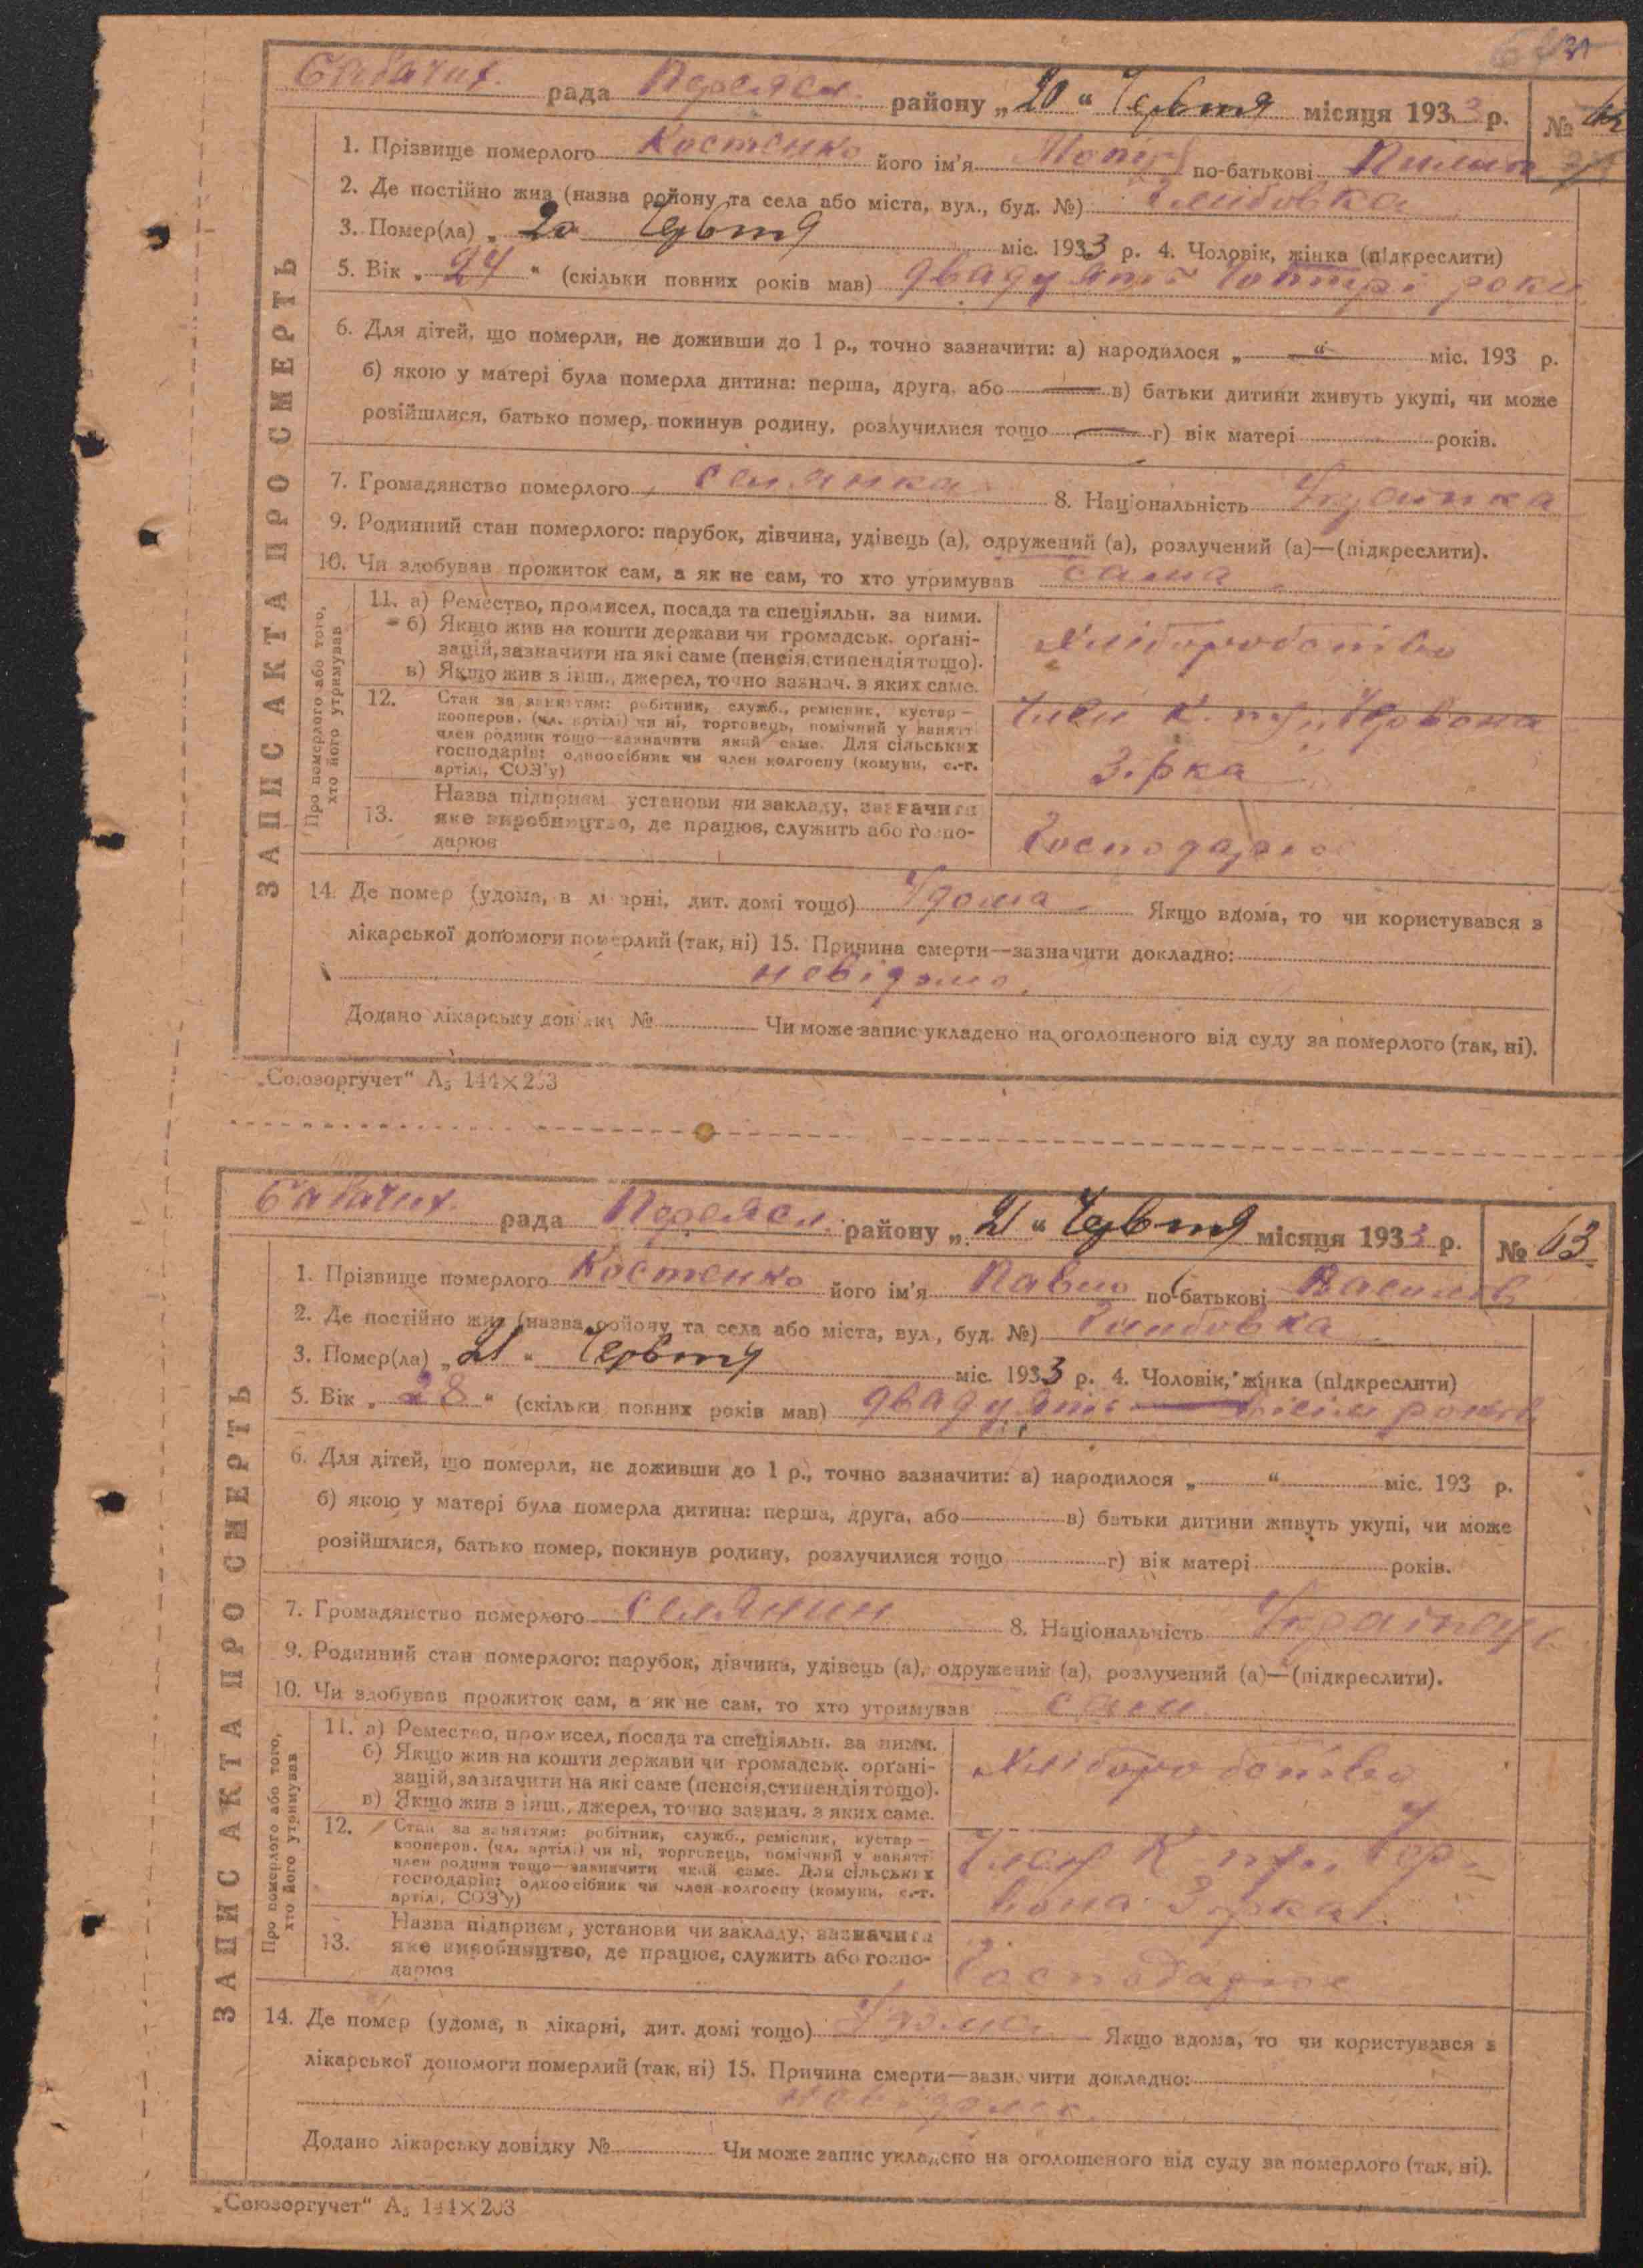 рада Переясл. району „20“ Червня місяця 1933 р. №
1. Прізвище померлого Костенко його ім'я по-батькові Пилип
2. Де постійно жив (назва району та села або міста, вул., буд. №)
3. Помер(ла) „20“ Червня міс. 1933 р. 4. Чоловік, жінка (підкреслити)
5. Вік „24“ (скільки повних років мав) двадцять чотири роки
6. Для дітей, що померли, не доживши до 1 р., точно зазначити: а) народилося „ “ міс. 193 р.
б) якою у матері була померла дитина: перша, друга, або в) батьки дитини живуть укупі, чи може
розійшлися, батько помер, покинув родину, розлучилися тощо г) вік матері років.
7. Громадянство померлого селянка 8. Національність Українка
9. Родинний стан померлого: парубок, дівчина, удівець (а), одружений (а), розлучений (а)—(підкреслити).
10. Чи здобував прожиток сам, а як не сам, то хто утримував сама
ЗАПИС АКТА ПРО СМЕРТЬ
Про померлого або того, хто його утримував
11. а) Ремество, промисел, посада та спеціяльн. за ними.
б) Якщо жив на кошти держави чи громадськ. орґані-
зацій, зазначити на які саме (пенсія, стипендія тощо).
в) Якщо жив з інш., джерел, точно зазнач. з яких саме.
Хліборобство
12. Стан за заняттям: робітник, служб., ремісник, кустар—
кооперов. (чл. артілі) чи ні, торговець, помічний у занятті
член родини тощо—зазначити який саме. Для сільських
господарів: одноосібник чи член колгоспу (комуни, с.-г.
артілі, СОЗ'у)
Член К. Червона
Зірка
13. Назва підприєм. установи чи закладу, зазначити
яке виробництво, де працює, служить або госпо-
дарює
Господарює
14. Де помер (удома, в лікарні, дит. домі тощо) Удома Якщо вдома, то чи користувався з
лікарської допомоги померлий (так, ні) 15. Причина смерти—зазначити докладно:
невідома.
Додано лікарську довідку № Чи може запис укладено на оголошеного від суду за померлого (так, ні).
„Союзоргучет“ А₅ 144×203
рада Переясл. району „21“ Червня місяця 1933 р. № 63
1. Прізвище померлого Костенко його ім'я Павло по-батькові Василів
2. Де постійно жив (назва району та села або міста, вул., буд. №)
3. Помер(ла) „21“ Червня міс. 1933 р. 4. Чоловік, жінка (підкреслити)
5. Вік „28“ (скільки повних років мав) двадцять вісім років
6. Для дітей, що померли, не доживши до 1 р., точно зазначити: а) народилося „ “ міс. 193 р.
б) якою у матері була померла дитина: перша, друга, або в) батьки дитини живуть укупі, чи може
розійшлися, батько помер, покинув родину, розлучилися тощо г) вік матері років.
7. Громадянство померлого селянин 8. Національність Українец
9. Родинний стан померлого: парубок, дівчина, удівець (а), одружений (а), розлучений (а)—(підкреслити).
10. Чи здобував прожиток сам, а як не сам, то хто утримував сам
ЗАПИС АКТА ПРО СМЕРТЬ
Про померлого або того, хто його утримував
11. а) Ремество, промисел, посада та спеціяльн. за ними.
б) Якщо жив на кошти держави чи громадськ. орґані-
зацій, зазначити на які саме (пенсія, стипендія тощо).
в) Якщо жив з інш., джерел, точно зазнач. з яких саме.
Хліборобство
12. Стан за заняттям: робітник, служб., ремісник, кустар—
кооперов. (чл. артілі) чи ні, торговець, помічний у занятті
член родини тощо—зазначити який саме. Для сільських
господарів: одноосібник чи член колгоспу (комуни, с.-г.
артілі, СОЗ'у)
Член К Чер-
вона Зірка
13. Назва підприєм, установи чи закладу, зазначити
яке виробництво, де працює, служить або госпо-
дарює
Господарює
14. Де помер (удома, в лікарні, дит. домі тощо) Удома Якщо вдома, то чи користувався з
лікарської допомоги померлий (так, ні) 15. Причина смерти—зазначити докладно:
невідома.
Додано лікарську довідку № Чи може запис укладено на оголошеного від суду за померлого (так, ні).
„Союзоргучет“ А₅ 144×203